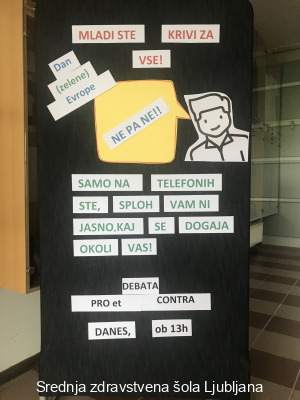 MLADI STE KRIVI ZA
VSE!
Dan
(zelene)
Evrope
NE PA NE!!
SAMO NA TELEFONIH
STE, SPLOH VAM NI
JASNO,KAJ SE DOGAJA
OKOLI VAS!
DEBATA
PRO et CONTRA
DANES, ob 13h
Srednja zdravstvena šola Ljubljana